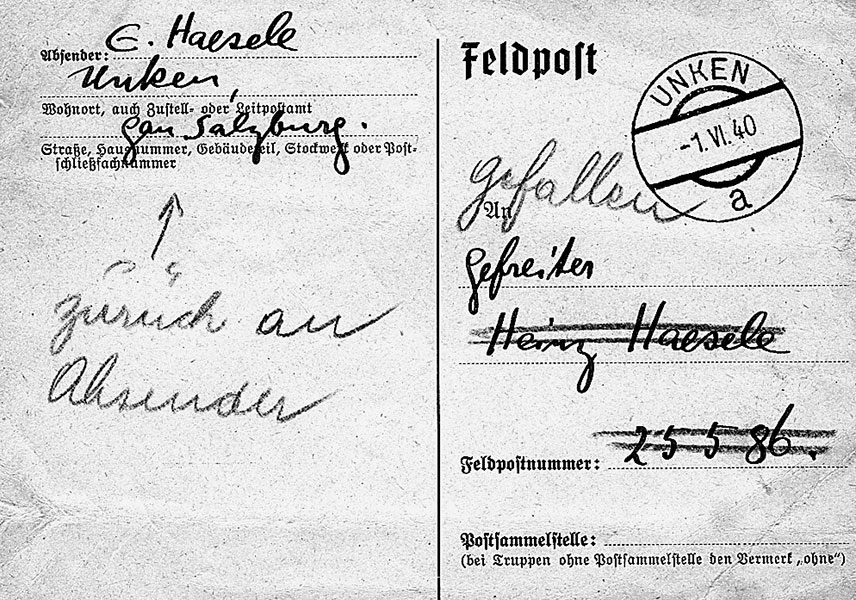 Absender: E. Haesele
Unken,
Wohnort, auch Zustell- oder Leitpostamt
Gau Salzburg.
Straße, Hausnummer, Gebäudeteil, Stockwerk oder Post-
schließfachnummer
zurück an
Absender
Feldpost
UNKEN
-1.VI.40
a
gefallen
An
Gefreiter
Heinz Haesele
Feldpostnummer: 25586.
Postsammelstelle:
(bei Truppen ohne Postsammelstelle den Vermerk „ohne“)